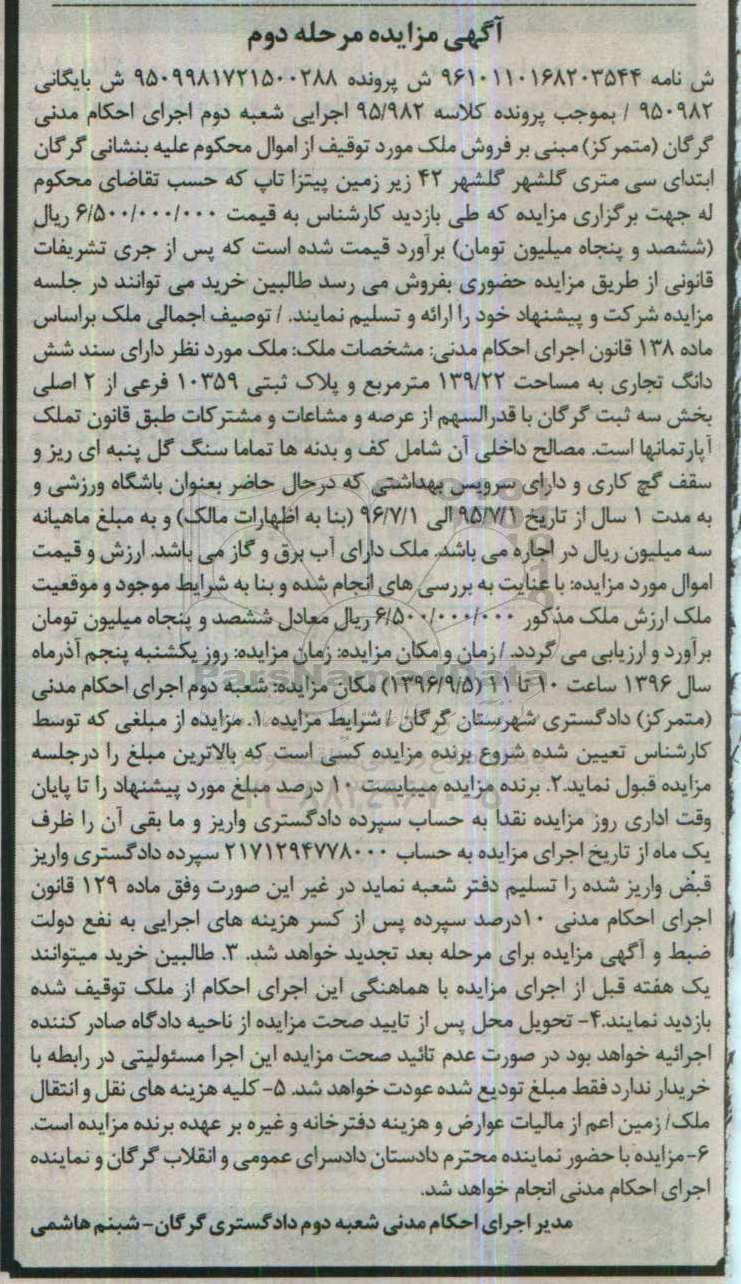 آگهی مزایده مرحله دوم
ش نامه ۹۶۱۰۱۱۰۱۶۸۲۰۳۵۴۴ ش پرونده ۹۵۰۹۹۸۱۷۲۱۵۰۰۲۸۸ ش بایگانی
۹۵۰۹۸۲ / بموجب پرونده کلاسه ۹۵/۹۸۲ اجرایی شعبه دوم اجرای احکام مدنی
گرگان (متمرکز) مبنی بر فروش ملک مورد توقیف از اموال محکوم علیه بنشانی گرگان
ابتدای سی متری گلشهر گلشهر ۴۲ زیر زمین پیتزا تاپ که حسب تقاضای محکوم
له جهت برگزاری مزایده که طی بازدید کارشناس به قیمت ۶/۵۰۰/۰۰۰/۰۰۰ ریال
(ششصد و پنجاه میلیون تومان) برآورد قیمت شده است که پس از جری تشریفات
قانونی از طریق مزایده حضوری بفروش می رسد طالبین خرید می توانند در جلسه
مزایده شرکت و پیشنهاد خود را ارائه و تسلیم نمایند. / توصیف اجمالی ملک براساس
ماده ۱۳۸ قانون اجرای احکام مدنی: مشخصات ملک: ملک مورد نظر دارای سند شش
دانگ تجاری به مساحت ۱۳۹/۲۲ مترمربع و پلاک ثبتی ۱۰۳۵۹ فرعی از ۲ اصلی
بخش سه ثبت گرگان با قدرالسهم از عرصه و مشاعات و مشترکات طبق قانون تملک
آپارتمانها است. مصالح داخلی آن شامل کف و بدنه ها تماما سنگ گل پنبه ای ریز و
سقف گچ کاری و دارای سرویس بهداشتی که درحال حاضر بعنوان باشگاه ورزشی و
به مدت ۱ سال از تاریخ ۹۵/۷/۱ الی ۹۶/۷/۱ (بنا به اظهارات مالک) و به مبلغ ماهیانه
سه میلیون ریال در اجاره می باشد. ملک دارای آب برق و گاز می باشد. ارزش و قیمت
اموال مورد مزایده: با عنایت به بررسی های انجام شده و بنا به شرایط موجود و موقعیت
ملک ارزش ملک مذکور ۶/۵۰۰/۰۰۰/۰۰۰ ریال معادل ششصد و پنجاه میلیون تومان
برآورد و ارزیابی می گردد. / زمان و مکان مزایده: زمان مزایده: روز یکشنبه پنجم آذرماه
سال ۱۳۹۶ ساعت ۱۰ تا ۱۱ (۱۳۹۶/۹/۵) مکان مزایده: شعبه دوم اجرای احکام مدنی
(متمرکز) دادگستری شهرستان گرگان / شرایط مزایده ۱. مزایده از مبلغی که توسط
کارشناس تعیین شده شروع برنده مزایده کسی است که بالاترین مبلغ را درجلسه
مزایده قبول نماید.۲. برنده مزایده میبایست ۱۰ درصد مبلغ مورد پیشنهاد را تا پایان
وقت اداری روز مزایده نقدا به حساب سپرده دادگستری واریز و ما بقی آن را ظرف
یک ماه از تاریخ اجرای مزایده به حساب ۲۱۷۱۲۹۴۷۷۸۰۰۰ سپرده دادگستری واریز
قبض واریز شده را تسلیم دفتر شعبه نماید در غیر این صورت وفق ماده ۱۲۹ قانون
اجرای احکام مدنی ۱۰درصد سپرده پس از کسر هزینه های اجرایی به نفع دولت
ضبط و آگهی مزایده برای مرحله بعد تجدید خواهد شد. ۳. طالبین خرید میتوانند
یک هفته قبل از اجرای مزایده با هماهنگی این اجرای احکام از ملک توقیف شده
بازدید نمایند.۴- تحویل محل پس از تایید صحت مزایده از ناحیه دادگاه صادر کننده
اجرائیه خواهد بود در صورت عدم تائید صحت مزایده این اجرا مسئولیتی در رابطه با
خریدار ندارد فقط مبلغ تودیع شده عودت خواهد شد. ۵- کلیه هزینه های نقل و انتقال
ملک/ زمین اعم از مالیات عوارض و هزینه دفترخانه و غیره بر عهده برنده مزایده است.
۶-مزایده با حضور نماینده محترم دادستان دادسرای عمومی و انقلاب گرگان و نماینده
اجرای احکام مدنی انجام خواهد شد.
مدیر اجرای احکام مدنی شعبه دوم دادگستری گرگان- شبنم هاشمی